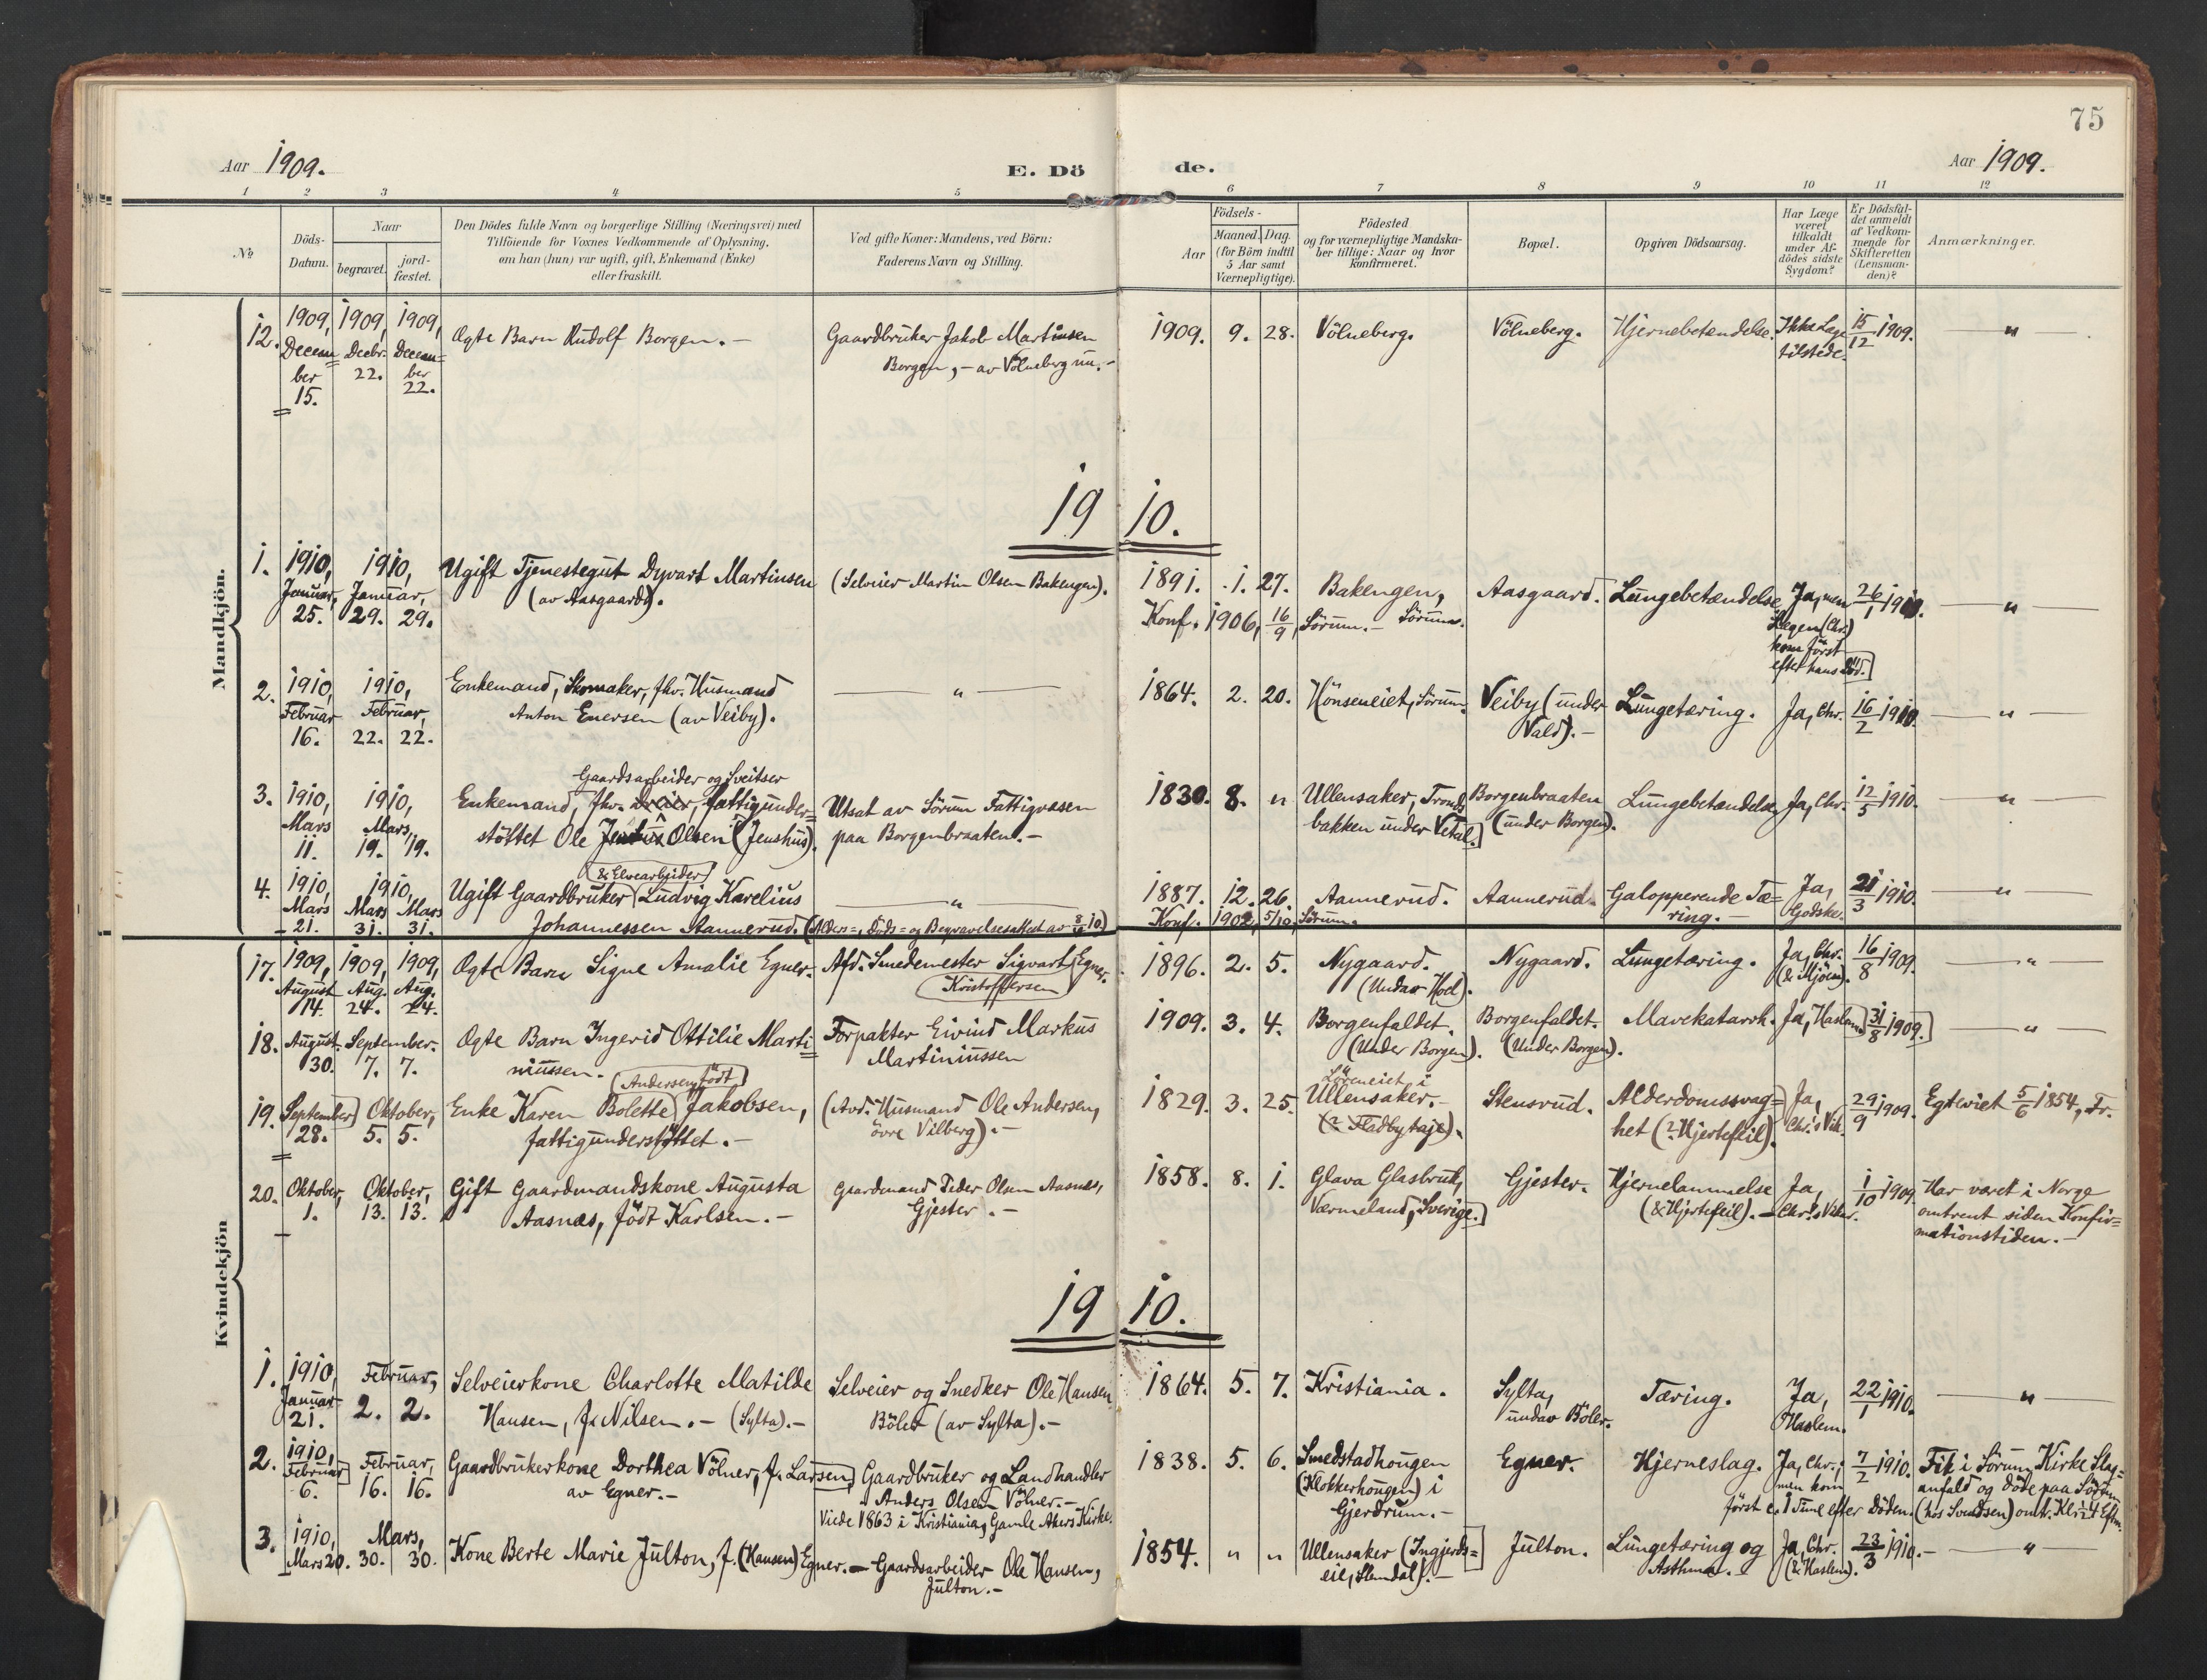 75
Aar 1909.
E. Dö de.
Aar 1909.
1 2 3 4 5 6 7 8 9 10 11 12
No
Döds-Datum.
Naar
begravet.
jord-fæstet.
Den Dödes fulde Navn og borgerlige Stilling (Næringsvei) med
Tilföiende for Voxnes Vedkommende af Oplysning,
om han (hun) var ugift, gift, Enkemand (Enke)
eller fraskilt.
Ved gifte Koner: Mandens, ved Börn:
Faderens Navn og Stilling.
Födsels-
Aar
Maaned. Dag.
(for Börn indtil
5 Aar samt
Værnepligtige).
Födested
og for værnepligtige Mandska-
ber tillige: Naar og hvor
konfirmeret.
Bopæl.
Opgiven Dödsaarsag.
Har Læge
været
tilkaldt
under Af-
dödes sidste
Sygdom?
Er Dödsfal-
det anmeldt
af Vedkom-
mende for
Skifteretten
(Lensman-
den)?
Anmærkninger.
Mandkjön.
12. 1909, Decem=ber 15. 1909, Decbr. 22. 1909, Decem=ber 22.
Ægte Barn Rudolf Borgen. -
Gaardbruker Jakob Martinsen
Borgen, - av Völneberg nu. -
1909. 9. 28. Völneberg. Völneberg. Hjernebetændelse. Ikke Læge tilstede. 15/12 1909. "
1910.
1. 1910, Januar, 25. 1910, Januar, 29. 29.
Ugift Tjenestegut Dyvart Martinsen
(av Aasgaard).
(Selveier Martin Olsen Bakengen).
1891. 1. 27. Bakengen, Sörum. Aasgaard. Lungebetændelse
Konf. 1906, 16/9, Sörum. -
Ja, men Lægen (Chr.) kom först efter hans Död. 26/1 1910. "
2. 1910, Februar 16. 1910, Februar, 22. 22.
Enkemand, Skomaker, fhv. Husmand
Anton Enersen (av Veiby).
"
1864. 2. 20. Hönseneiet, Sörum. Veiby (under Vald). - Lungetæring. Ja, Chr. 16/2 1910. "
3. 1910, Mars 11. 1910, Mars, 19. 19.
Gaardsarbeider og Sveitser
Enkemand, fhv. fattigunder=
stöttet Ole Olsen (Jenshus).
Utsat av Sörum Fattigvæsen
paa Borgenbraaten. -
1830. 8. " Ullensaker, Trond=
bakken under Vetal. Borgenbraaten (under Borgen). Lungebetændelse Ja, Chr. 12/5 1910. "
4. 1910, Mars 21. 1910, Mars 31. Mars 31.
Ugift Gaardbruker (& Elvearbeider) Ludvig Karelius
Johannessen Aannerud. (Alders=, Döds= og Begravelsesattest av
"
1887. 12. 26. Aannerud. Aannerud. Galopperende Tæ=
ring. - Ja, Godske. 21/3 1910. "
Konf. 1902, 5/10, Sörum.
Kvindekjön
17. 1909, August 14. 1909, Aug. 24. 1909, Aug. 24.
Ægte Barn Signe Amalie Egner.
Afd. Smedemester Sigvart Kristoffersen Egner.
1896. 2. 5. Nygaard. (Under Hoel). Nygaard. Lungetæring. Ja, Chr. (& Mjöen). 16/8 1909. "
18. August 30. September. 7. 7.
Ægte Barn Ingerid Ottilie Marti=
niussen.
Forpakter Eivind Markus
Martiniussen
1909. 3. 4. Borgenfaldet. (Under Borgen). Borgenfaldet. (Under Borgen). Mavekatarrh. Ja, Haslem 31/8 1909. "
19. September 28. Oktober, 5. 5.
Enke Karen Bolette (Andersen, födt) Jakobsen,
fattigunderstöttet. -
(Avd. Husmand Ole Andersen,
övre Vilberg). -
1829. 3. 25. Löreneiet i
Ullensaker. -
(? Fladbytajet). Stensrud. Alderdomssvag=
het (? Hjertefeil). Ja, Chr. & Vik. 29/9 1909. Egteviet 5/6 1854, Fr.
20. Oktober, 1. Oktober, 13. 13.
Gift Gaardmandskone Augusta
Aasnæs, födt Karlsen. -
Gaardmand Peder Olsen Aasnæs,
Gjester. -
1858. 8. 1. Glava Glasbruk,
Værmeland, Sverige. Gjester. Hjernelammelse
(& Hjertefeil). - Ja, Chr. & Viker. 1/10 1909. Har været i Norge
omtrent siden Konfir=
mationstiden. -
1910.
1. 1910, Januar 21. Februar, 2. 2.
Selveierkone Charlotte Matilde
Hansen, f. Nilsen. - (Sylta). -
Selveier og Snedker Ole Hansen
Böler (av Sylta). -
1864. 5. 7. Kristiania. Sylta, under Böler. Tæring. Ja, Haslem. 22/1 1910. "
2. 1910, Februar 6. Februar, 16. 16.
Gaardbrukerkone Dorthea Völner, f. Larsen,
av Egner. -
Gaardbruker og Landhandler
Anders Olsen Völner. -
Viede 1863 i Kristiania, Gamle Akers Kirke.
1838. 5. 6. Smedstadhougen
(Klokkerhougen) i
Gjerdrum. - Egner. Hjerneslag. Ja, Chr., men kom
först c. 1 Time efter Döden. 7/2 1910. Fik i Sörum Kirke Slag=
anfald og döde paa Sörum
(hos Svendsen) omtr. Kl. Eftm.
3. 1910, Mars 20. Mars, 30. 30.
Kone Berte Marie Julton, f. (Hansen) Egner. - Gaardsarbeider Ole Hansen,
Julton. -
1854. " " Ullensaker (Ingjerds=
eie, Slemdal). - Julton. Lungetæring og
Asthma. - Ja, Chr. (& Haslem). 23/3 1910. - "